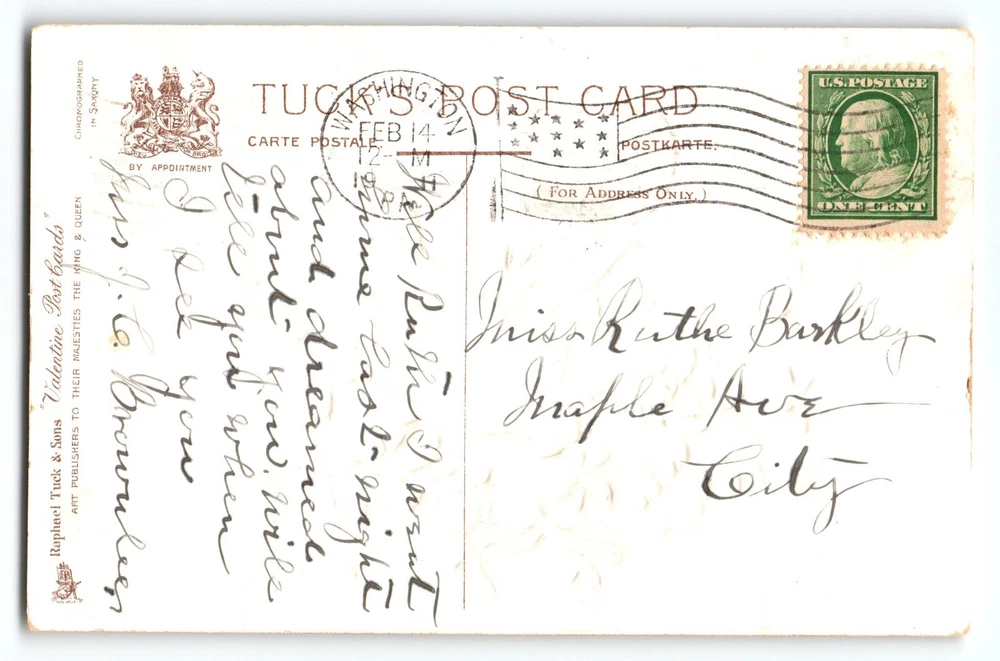 CHRONOGRAPHED
IN SAXONY
BY APPOINTMENT
TUCK'S POST CARD
CARTE POSTALE
POSTKARTE.
( FOR ADDRESS ONLY. )
WASHINGTON
FEB 14
12- M
U.S. POSTAGE
ONE CENT
Raphael Tuck & Sons "Valentine Post Cards"
ART PUBLISHERS TO THEIR MAJESTIES THE KING & QUEEN
Well Ruth I went
home last night
and dreamed
about you. Will
tell you when
I see you
Miss J.C. Brownlee,
Miss Ruthe Barkley
Maple Ave
City